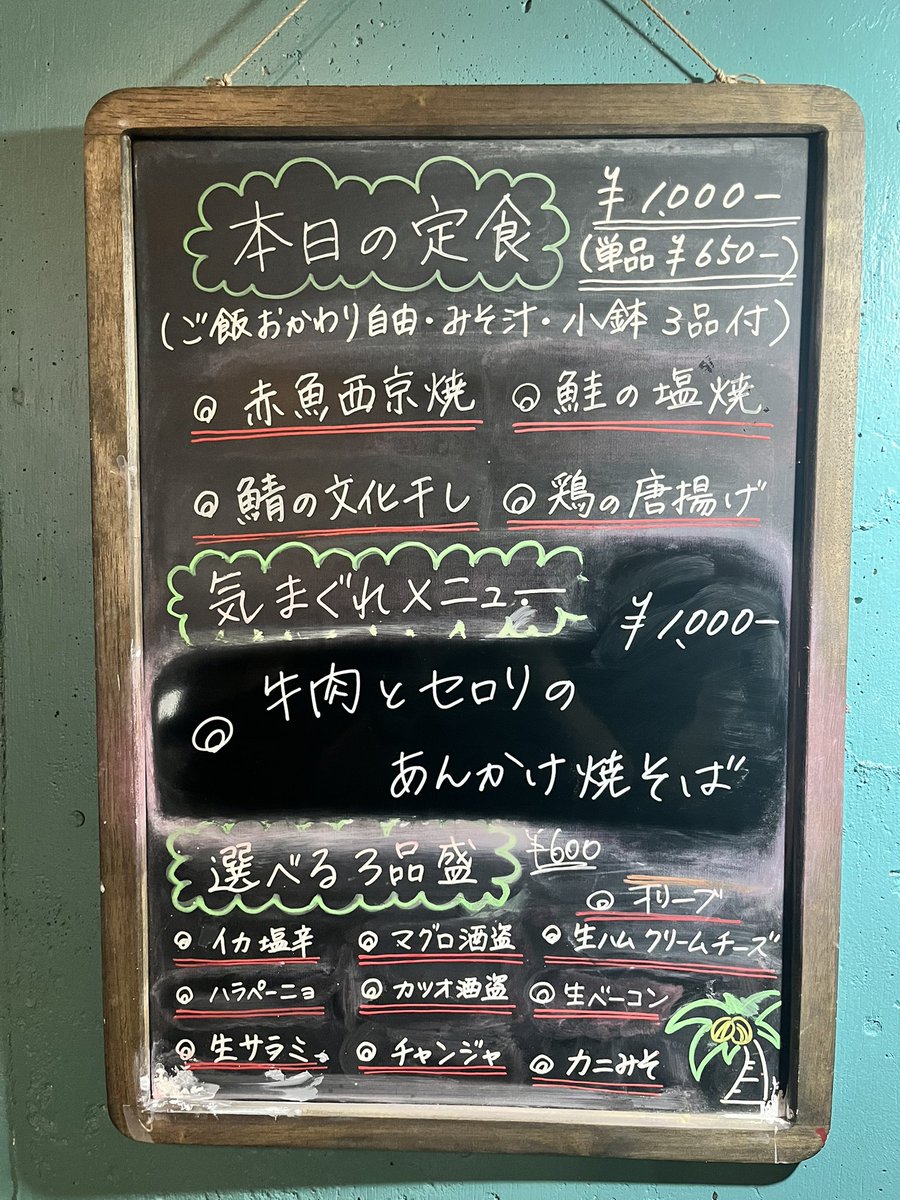 本日の定食 ¥1,000-
(単品¥650-)
(ご飯おかわり自由・みそ汁・小鉢3品付)
◎赤魚西京焼 ◎鮭の塩焼
◎鯖の文化干し ◎鶏の唐揚げ
気まぐれメニュー ¥1,000-
◎牛肉とセロリの
あんかけ焼そば
選べる3品盛 ¥600
◎オリーブ
◎イカ塩辛 ◎マグロ酒盗 ◎生ハムクリームチーズ
◎ハラペーニョ ◎カツオ酒盗 ◎生ベーコン
◎生サラミ ◎チャンジャ ◎カニみそ